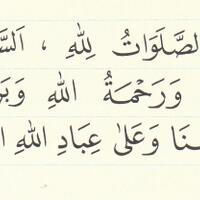 لصَّلَوَاتُ لِلّٰهِ ، اَلسَّ
وَرَحْمَةُ اللهِ وَبَرَ
ـنَا وَعَلىٰ عِبَادِ اللهِ ا